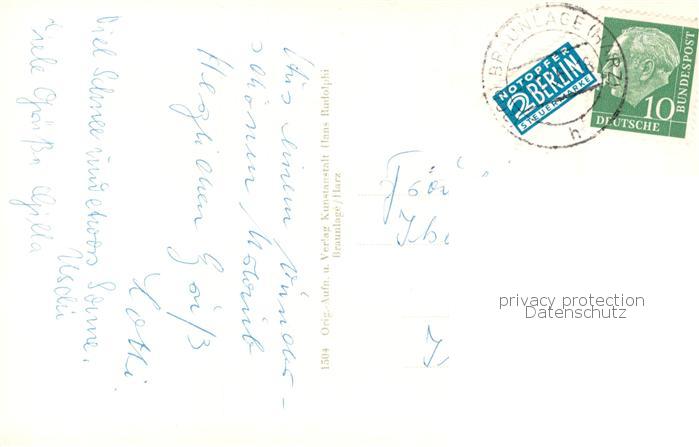 Aus einem wunder-
schönen Urlaub
Herzlichen Gruß
Lotti
Viel Schnee und etwas Sonne.
Uschi
Viele Grüße Gilla
1504 Orig.-Aufn. u. Verlag Kunstanstalt Hans Rudolphi
Braunlage/Harz
BRAUNLAGE (HARZ)
h
NOTOPFER
2 BERLIN
STEUERMARKE
10
DEUTSCHE
BUNDESPOST
privacy protection
Datenschutz